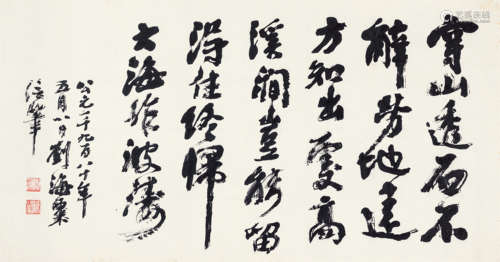 穿山透石不
辭勞地遠
方知出處高
溪澗豈能留
得住終歸
大海作波濤
公元一千九百八十年
五月八日劉海粟